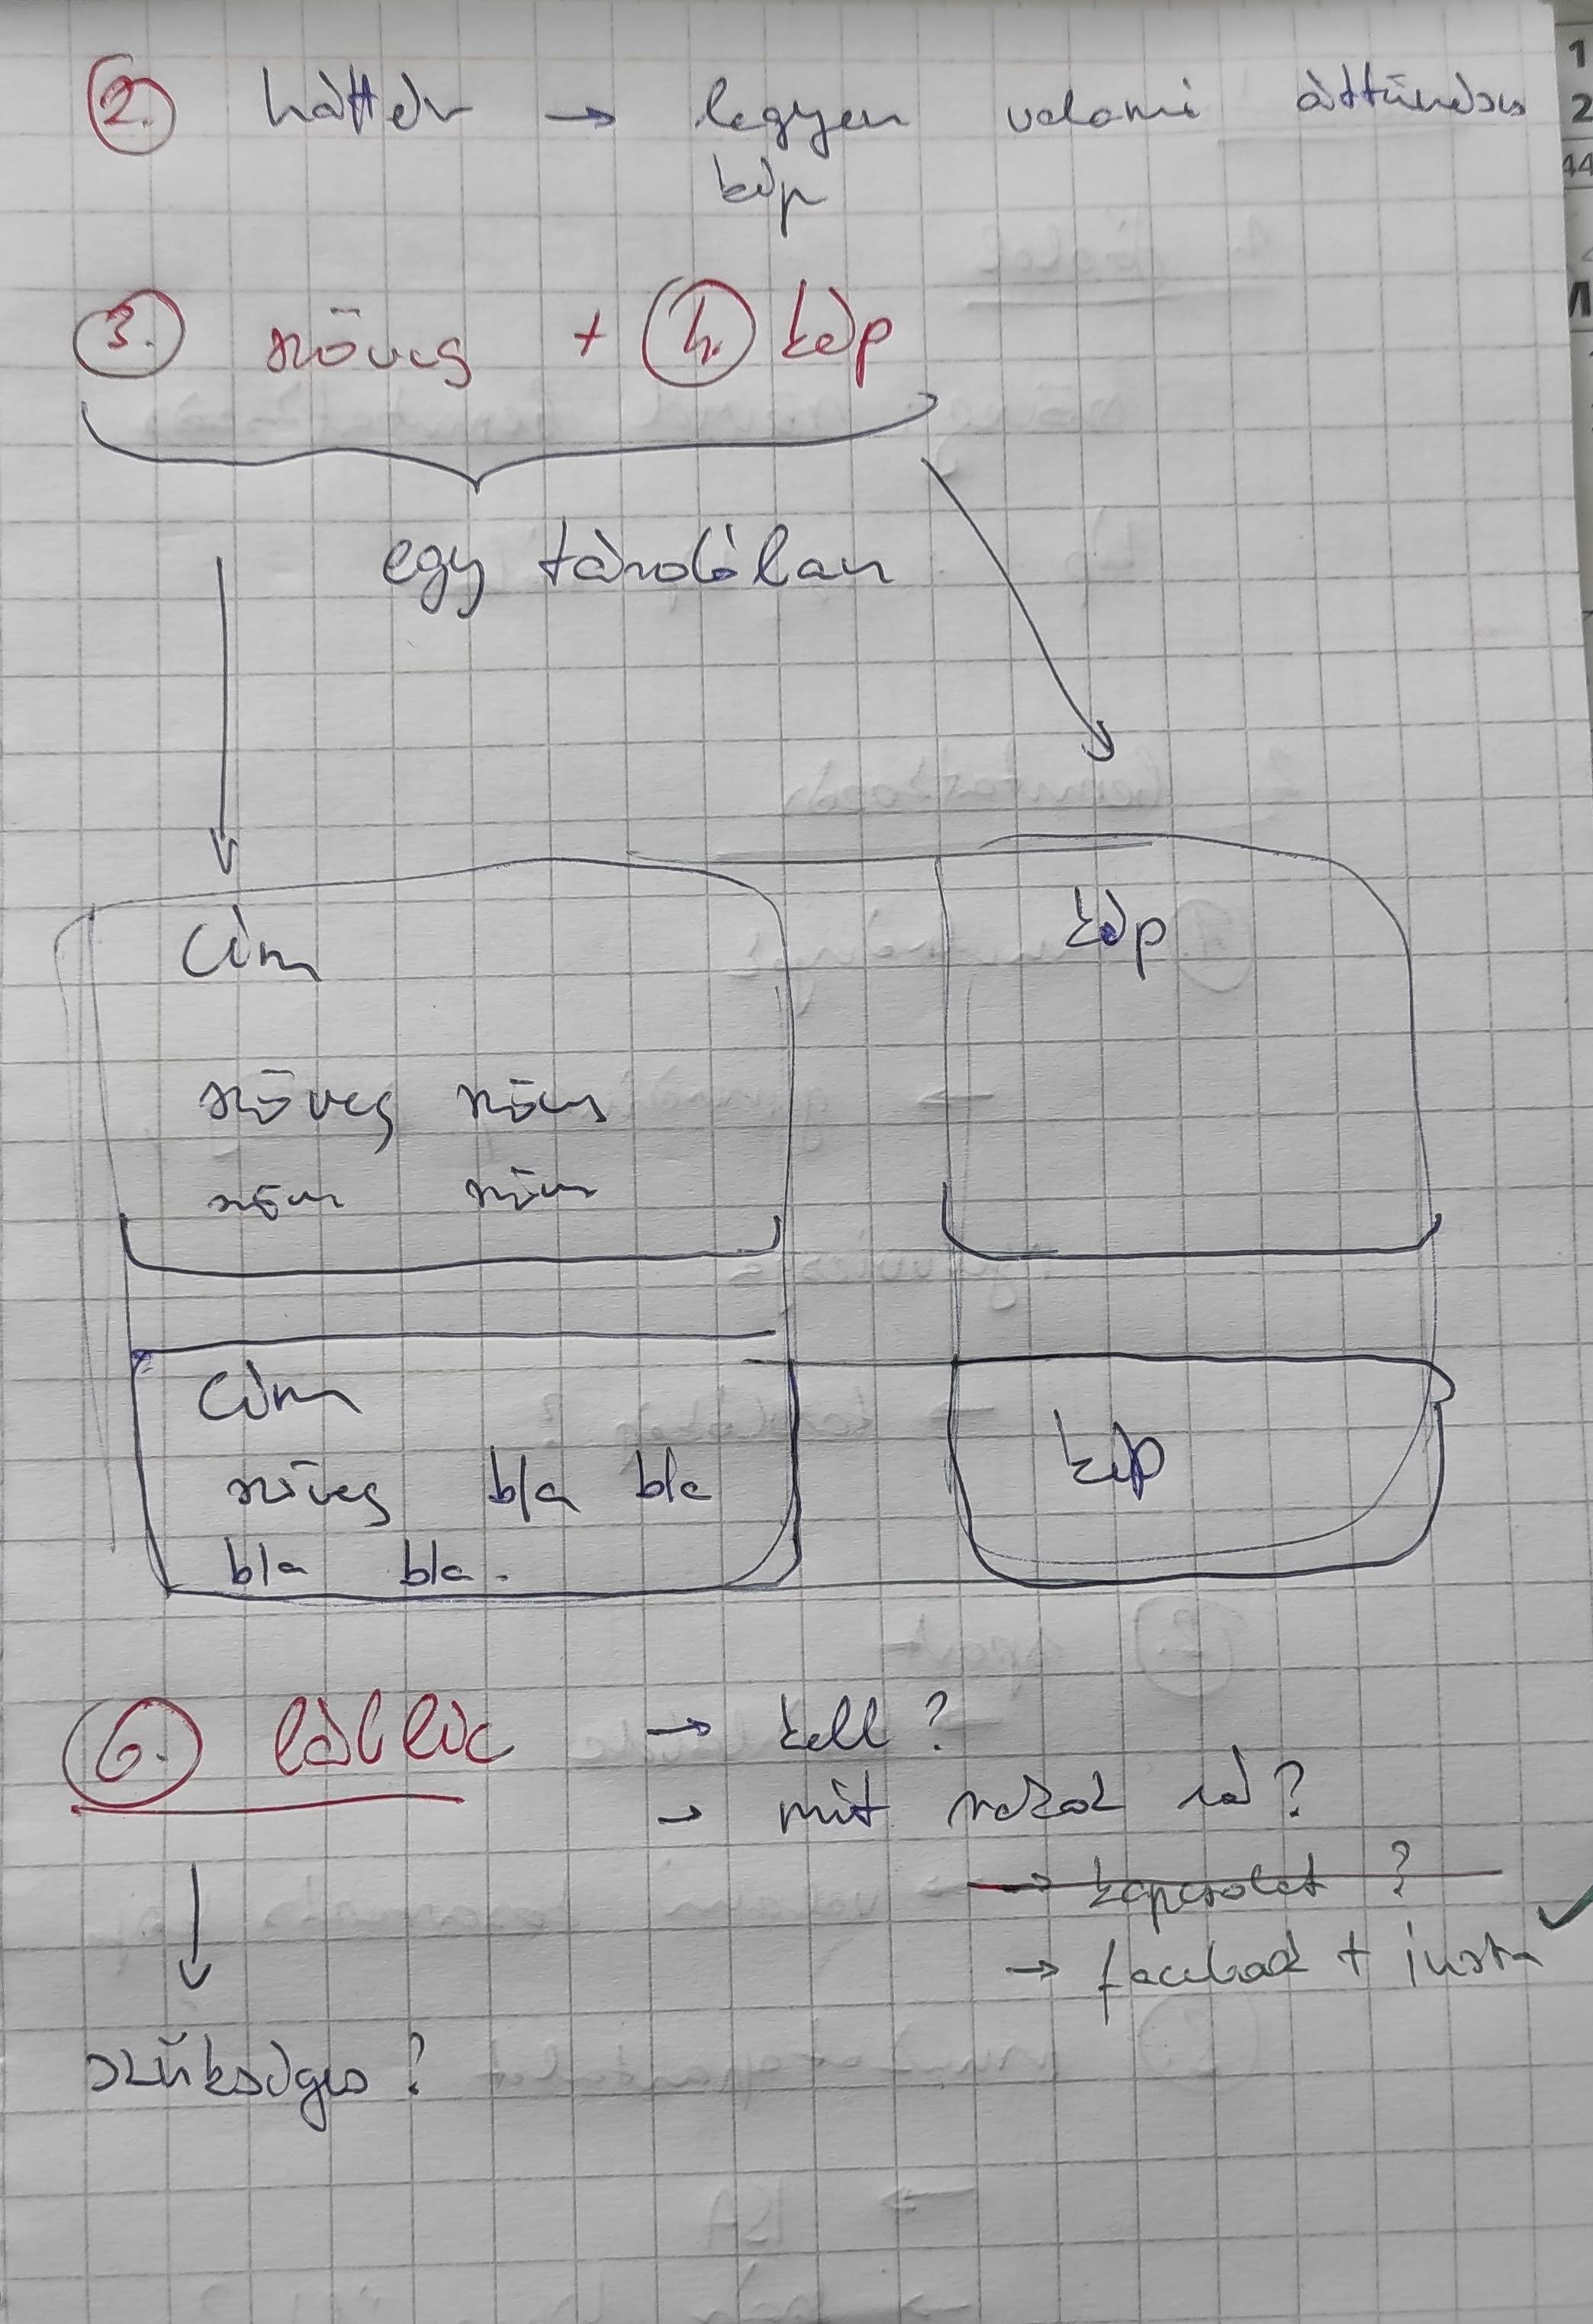 2. háttér → legyen valami áttűnéses
kép
3. szöveg + 4. kép
egy tárolóban
Cím
kép
szöveg szöv
szöv szöv
Cím
szöveg bla bla
kép
bla bla.
6. lábléc → kell?
→ mit rakok rá?
→ kapcsolat?
→ facebook + insta ✓
szükséges?
1
2
44